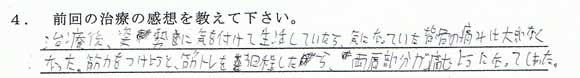 4. 前回の治療の感想を教えて下さい。
治療後、姿勢に気を付けて生活していたら、気になっていた背骨の痛みは大分なく
なった。筋力をつけようと、筋トレを1週程したら、両肩部分が痛むようになってしまった。